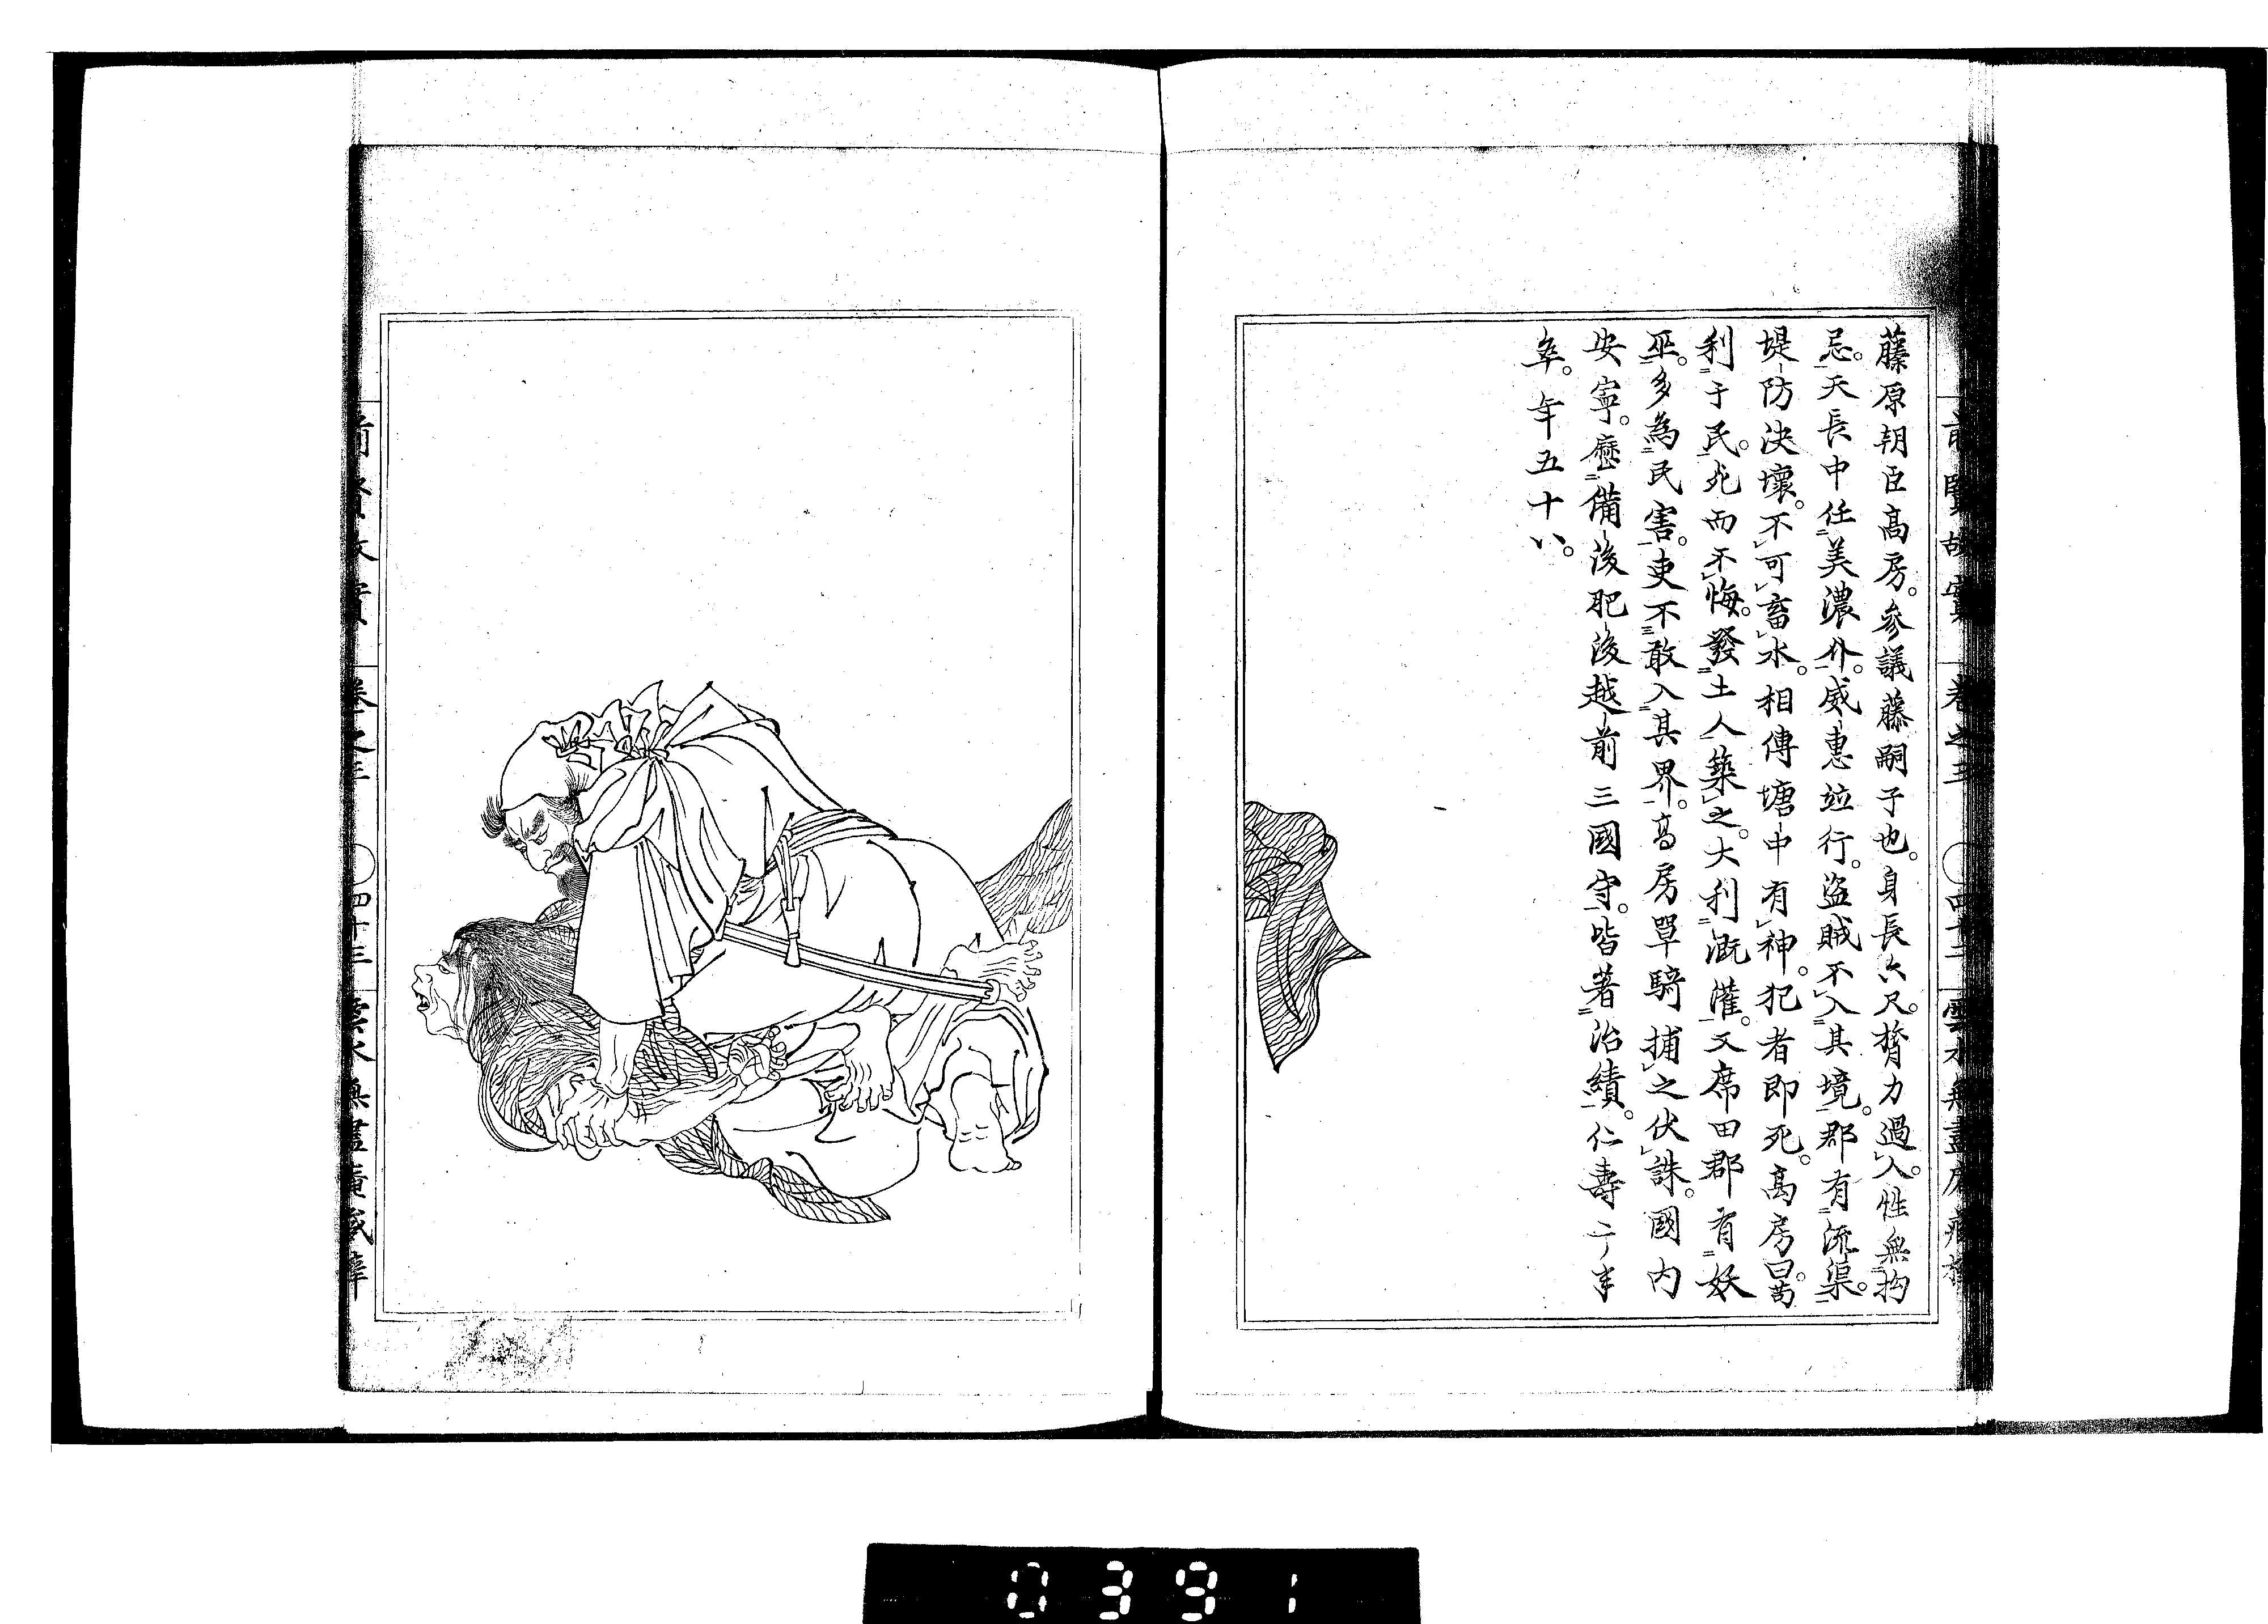 前賢故實 卷之三 〇四十二 雲水無盡
藤原朝臣高房。參議藤嗣子也。身長六尺。膂力過人。性無拘
忌。天長中任美濃介。威惠竝行。盜賊不入其境。郡有流渠。
堤防決壞。不可畜水。相傳塘中有神。犯者即死。高房曰。苟
利于民。死而不悔。發土人築之。大利漑灌。又席田郡有妖
巫。多為民害。吏不敢入其界。高房單騎捕之伏誅。國内
安寧。歷備後肥後越前三國守。皆著治績。仁壽二年
卒。年五十八。
前賢故實 卷之三 〇四十三 雲水無盡
0391